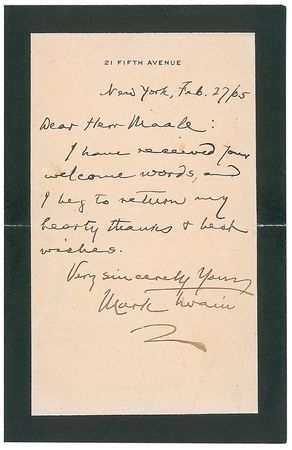 21 FIFTH AVENUE
New York, Feb. 27/05
Dear Herr Maale:
I have received your
welcome words, and
I beg to return my
hearty thanks & best
wishes.
Very sincerely Yours
Mark Twain